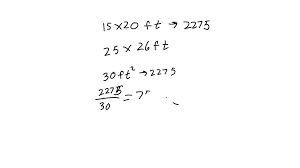 15 x 20 ft → 2275
25 x 26 ft
30 ft² → 2275
2275
30
= 7